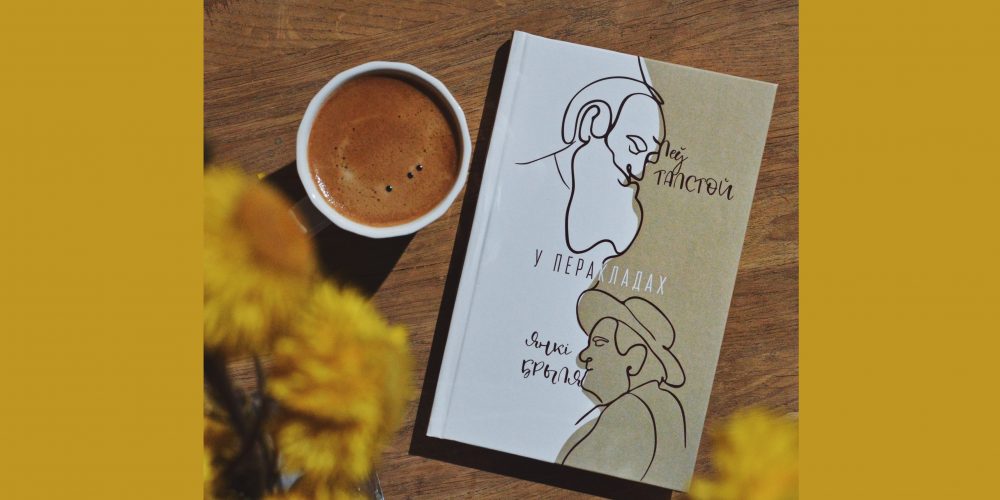 Леў
ТАЛСТОЙ
У ПЕРАКЛАДАХ
Янкі
БРЫЛЯ